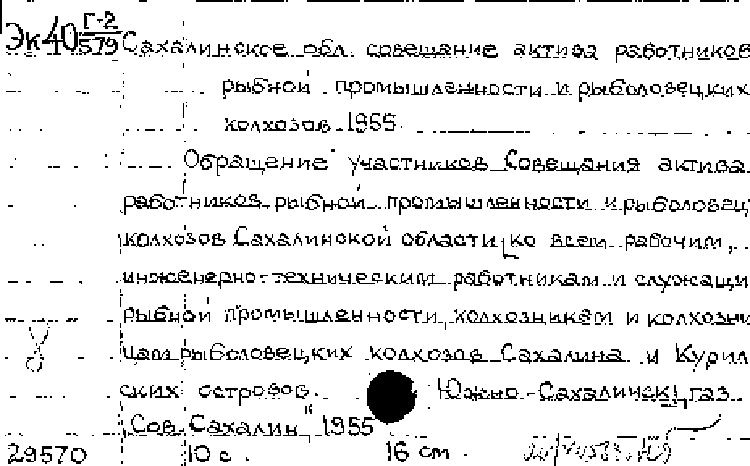 Эк40 Г-2/579 Сахалинское обл. совещание актива работников
рыбной промышленности и рыболовецких
колхозов 1955
Обращение участников Совещания актива
работников рыбной промышленности и рыболовец
колхозов Сахалинской области ко всем рабочим,
инженерно-техническим работникам и служащи
рыбной промышленности, колхозникам и колхозни
цам рыболовецких колхозов Сахалина и Курил
ских островов. Южно-Сахалинск, газ.
"Сов. Сахалин" 1955
29570 10 с. 16 см.